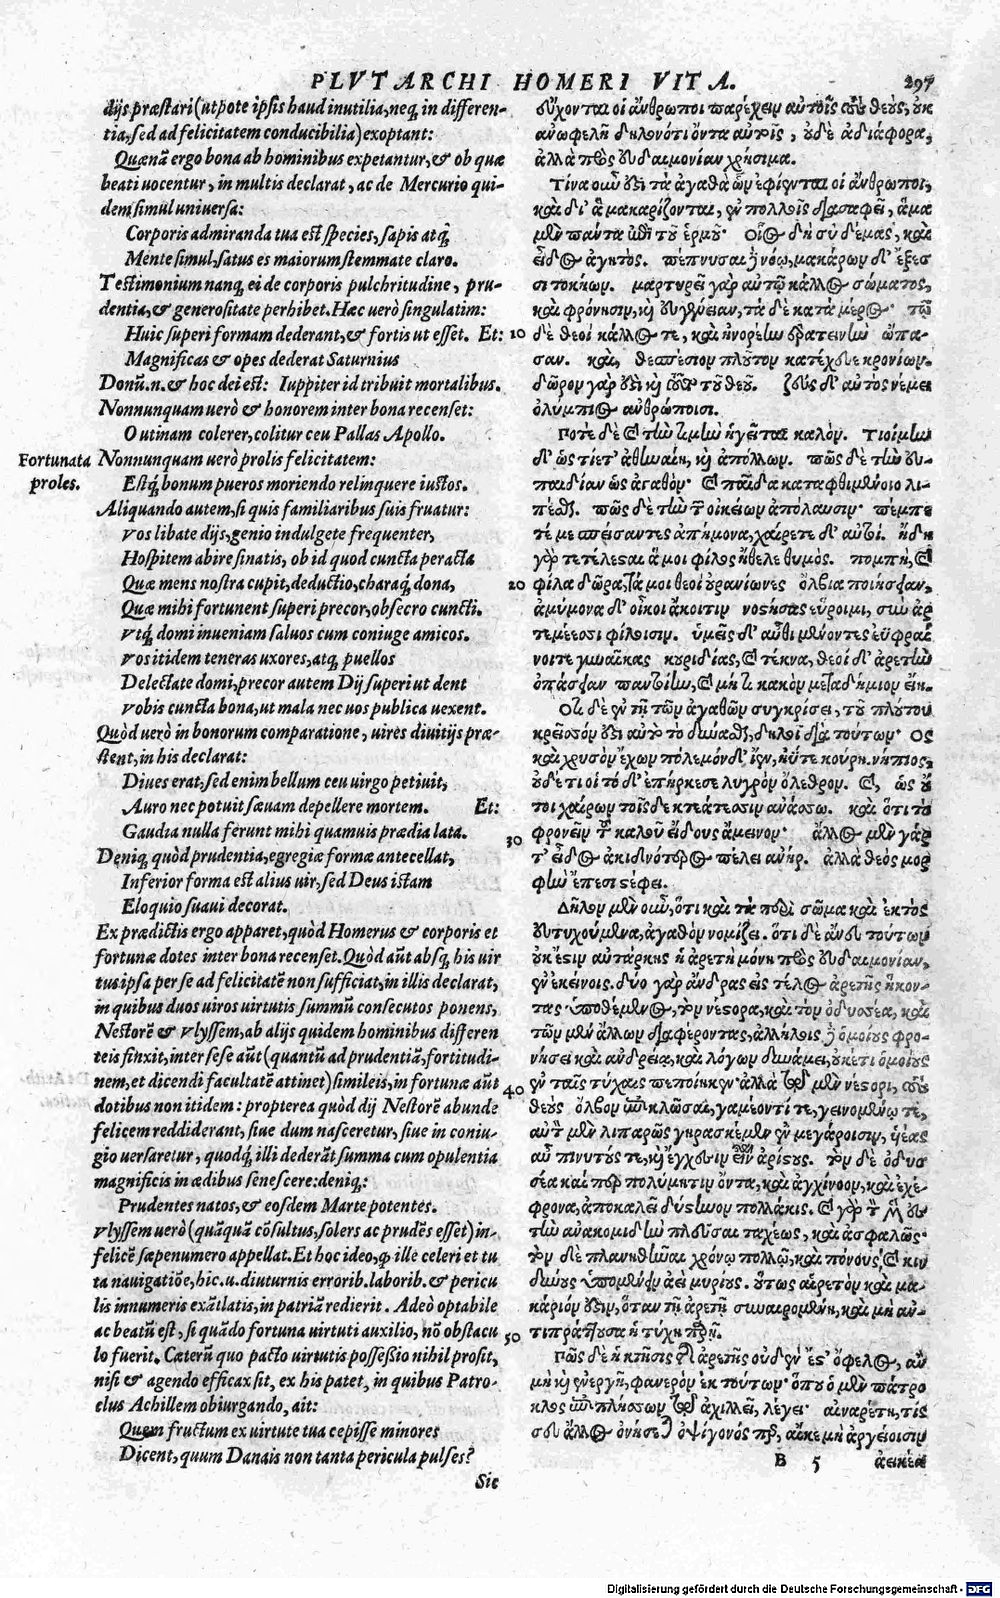 PLVTARCHI HOMERI VITA. 297
dijs præstari (utpote ipsis haud inutilia, neq; in differen-
tia, sed ad felicitatem conducibilia) exoptant:
Quænã ergo bona ab hominibus expetantur, & ob quæ
beati uocentur, in multis declarat, ac de Mercurio qui-
dem simul uniuersa:
Corporis admiranda tua est species, sapis atq;
Mente simul, satus es maiorum stemmate claro.
Testimonium nanq; ei de corporis pulchritudine, pru-
dentia, & generositate perhibet. Hæc uerò singulatim:
Huic superi formam dederant, & fortis ut esset. Et:
Magnificas & opes dederat Saturnius
Donũ.n. & hoc dei est: Iuppiter id tribuit mortalibus.
Nonnunquam uerò & honorem inter bona recenset:
O utinam colerer, colitur ceu Pallas Apollo.
Fortunata
proles.
Nonnunquam uerò prolis felicitatem:
Estq; bonum pueros moriendo relinquere iustos.
Aliquando autem, si quis familiaribus suis fruatur:
Vos libate dijs, genio indulgete frequenter,
Hospitem abire sinatis, ob id quod cuncta peracta
Quæ mens nostra cupit, deductio, charaq; dona,
Quæ mihi fortunent superi precor, obsecro cuncti.
Vtq; domi inueniam saluos cum coniuge amicos.
Vos itidem teneras uxores, atq; puellos
Delectate domi, precor autem Dij superi ut dent
Vobis cuncta bona, ut mala nec uos publica uexent.
Quòd uerò in bonorum comparatione, uires diuitijs præ-
stent, in his declarat:
Diues erat, sed enim bellum ceu uirgo petiuit,
Auro nec potuit sæuam depellere mortem. Et:
Gaudia nulla ferunt mihi quamuis prædia lata.
Deniq; quòd prudentia, egregiæ formæ antecellat,
Inferior forma est alius uir, sed Deus istam
Eloquio suaui decorat.
Ex prædictis ergo apparet, quòd Homerus & corporis et
fortunæ dotes inter bona recenset. Quòd aũt absq; his uir
tus ipsa per se ad felicitatẽ non sufficiat, in illis declarat,
in quibus duos uiros uirtutis summũ consecutos ponens,
Nestorẽ & Vlyssem, ab alijs quidem hominibus differen
teis finxit, inter sese aũt (quantũ ad prudentiã, fortitudi-
nem, et dicendi facultatẽ attinet) simileis, in fortunæ aũt
dotibus non itidem: propterea quòd dij Nestorẽ abunde
felicem reddiderant, siue dum nasceretur, siue in coniu-
gio uersaretur, quodq; illi dederãt summa cum opulentia
magnificis in ædibus senescere: deniq;:
Prudentes natos, & eosdem Marte potentes.
Vlyssem uerò (quãquã cõsultus, solers ac prudẽs esset) in-
felicẽ sæpenumero appellat. Et hoc ideo, q; ille celeri et tu
ta nauigatiõe, hic.u. diuturnis errorib. laborib. & pericu
lis innumeris exãtlatis, in patriã redierit. Adeò optabile
ac beatũ est, si quãdo fortuna uirtuti auxilio, nõ obstacu
lo fuerit. Cæterũ quo pacto uirtutis possessio nihil prosit,
nisi & agendo efficax sit, ex his patet, in quibus Patro-
clus Achillem obiurgando, ait:
Quem fructum ex uirtute tua cepisse minores
Dicent, quum Danais non tanta pericula pulses?
Sic
εὔχονται οἱ ἄνθρωποι παρέχειν αὐτοῖς τοὺς θεοὺς, οὐκ
ἀνωφελῆ δηλονότι ὄντα αὐτοῖς, οὐδὲ ἀδιάφορα,
ἀλλὰ πρὸς εὐδαιμονίαν χρήσιμα.
Τίνα οὖν ἐστι τὰ ἀγαθὰ ὧν ἐφίενται οἱ ἄνθρωποι,
καὶ δι' ἃ μακαρίζονται, ἐν πολλοῖς διασαφεῖ, ἅμα
μὲν πάντα ἐπὶ τοῦ ἑρμοῦ· οἷος δὴ σὺ δέμας, καὶ
εἶδος ἀγητός. πέπνυσαι τε νόῳ, μακάρων δ' ἔξεσ
σι τοκήων. μαρτυρεῖ γὰρ αὐτῷ κάλλος σώματος,
καὶ φρόνησιν, καὶ εὐγένειαν, τὰ δὲ κατὰ μέρος· τῷ
10 δὲ θεοὶ κάλλος τε, καὶ ἠνορέην ἐρατεινὴν ὤπα-
σαν. καὶ, θεσπέσιον πλοῦτον κατέχευε κρονίων.
δῶρον γάρ ἐστι καὶ τοῦτο τοῦ θεοῦ. ζεὺς δ' αὐτὸς νέμει
ὀλύμπιος ἀνθρώποισι.
Ποτὲ δὲ καὶ τὴν τιμὴν ἡγεῖται καλόν. Τιοίμην
δ' ὡς τίετ' ἀθηναίη, καὶ ἀπόλλων. πῶς δὲ τὴν εὐ-
παιδίαν ὡς ἀγαθόν· καὶ παῖδα καταφθιμένοιο λι-
πέσθαι. πῶς δὲ τὴν τῶν οἰκείων ἀπόλαυσιν· πέμπε
τέ με σπείσαντες ἀπήμονα, χαίρετε δ' αὐτοί. ἤδη
γὰρ τετέλεσται ἅ μοι φίλος ἤθελε θυμός. πομπὴ, καὶ
20 φίλα δῶρα, τά μοι θεοὶ οὐρανίωνες ὄλβια ποιήσειαν,
ἀμύμονα δ' οἴκοι ἄκοιτιν νοστήσας εὕροιμι, σὺν ἀρ
τεμέεσσι φίλοισιν. ὑμεῖς δ' αὖθι μένοντες ἐϋφραί
νοιτε γυναῖκας κυριδίας, καὶ τέκνα, θεοὶ δ' ἀρετὴν
ὀπάσειαν παντοίην, καὶ μή τι κακὸν μεταδήμιον εἴη.
Ὅτι δὲ ἐν τῇ τῶν ἀγαθῶν συγκρίσει, τοῦ πλούτου
κρεῖσσόν ἐστι αὐτὸ τὸ δύνασθαι, δηλοῖ διὰ τούτων· ὃς
καὶ χρυσὸν ἔχων πόλεμον δ' ἴεν, ἠΰτε κούρη. νήπιος,
οὐδέ τι οἱ τό δ' ἐπήρκεσε λυγρὸν ὄλεθρον. καὶ, ὡς οὔ
τοι χαίρων τοῖς δε κτεάτεσσιν ἀνάσσω. καὶ ὅτι τὸ
30 φρονεῖν τοῦ καλοῦ εἴδους ἄμεινον· ἄλλος μὲν γάρ
τ' εἶδος ἀκιδνότερος πέλει ἀνήρ. ἀλλὰ θεὸς μορ
φὴν ἔπεσι στέφει.
Δῆλον μὲν οὖν, ὅτι καὶ τὰ περὶ σῶμα καὶ ἐκτὸς
εὐτυχούμενα, ἀγαθὸν νομίζει. ὅτι δὲ ἄνευ τούτων
οὐκ ἔστιν αὐτάρκης ἡ ἀρετὴ μόνη πρὸς εὐδαιμονίαν,
ἐν ἐκείνοις. δύο γὰρ ἄνδρας εἰς τέλος ἀρετῆς ἥκον-
τας ὑποθέμενος, τὸν νέστορα, καὶ τὸν ὀδυσσέα, καὶ
τῶν μὲν ἄλλων διαφέροντας, ἀλλήλοις δὲ ὁμοίους φρο-
νήσει καὶ ἀνδρείᾳ, καὶ λόγων δυνάμει, οὐκέτι ὁμοίους
40 ἐν ταῖς τύχαις πεποίηκεν· ἀλλὰ τῷ μὲν νέστορι, τοὺς
θεοὺς ὄλβον ἐπικλῶσαι, γαμέοντί τε, γεινομένῳ τε,
αὐτὸν μὲν λιπαρῶς γηρασκέμεν ἐν μεγάροισιν, υἱέας
αὖ πινυτούς τε, καὶ ἔγχεσιν εἶναι ἀρίστους. τὸν δὲ ὀδυσ
σέα καίπερ πολύμητιν ὄντα, καὶ ἀγχίνοον, καὶ ἐχέ-
φρονα, ἀποκαλεῖ δύστηνον πολλάκις. καὶ γὰρ τὸν μὲν εὐ
τὴν ἀνακομιδὴν πλεῦσαι ταχέως, καὶ ἀσφαλῶς·
τὸν δὲ πλανηθῆναι χρόνῳ πολλῷ, καὶ πόνους, καὶ κιν
δύνους ὑπομένειν ἀεὶ μυρίους. οὕτως αἱρετὸν καὶ μα-
κάριόν ἐστιν, ὅταν τῇ ἀρετῇ συναιρομένη, καὶ μὴ ἀν-
50 τιπράττουσα ἡ τύχη παρῇ.
Πῶς δὲ ἡ κτῆσις τῆς ἀρετῆς οὐδέν ἐστ' ὄφελος, ἂν
μὴ καὶ ἐνεργῇ, φανερὸν ἐκ τούτων· ὅπου ὁ μὲν πάτρο
κλος ἐπιπλήσσων τῷ ἀχιλλεῖ, λέγει· αἰναρέτη, τίς
σευ ἄλλος ὀνήσεται ὀψίγονός περ, αἴκε μὴ ἀργείοισιν
B 5 ἀεικέα
Digitalisierung gefördert durch die Deutsche Forschungsgemeinschaft - DFG